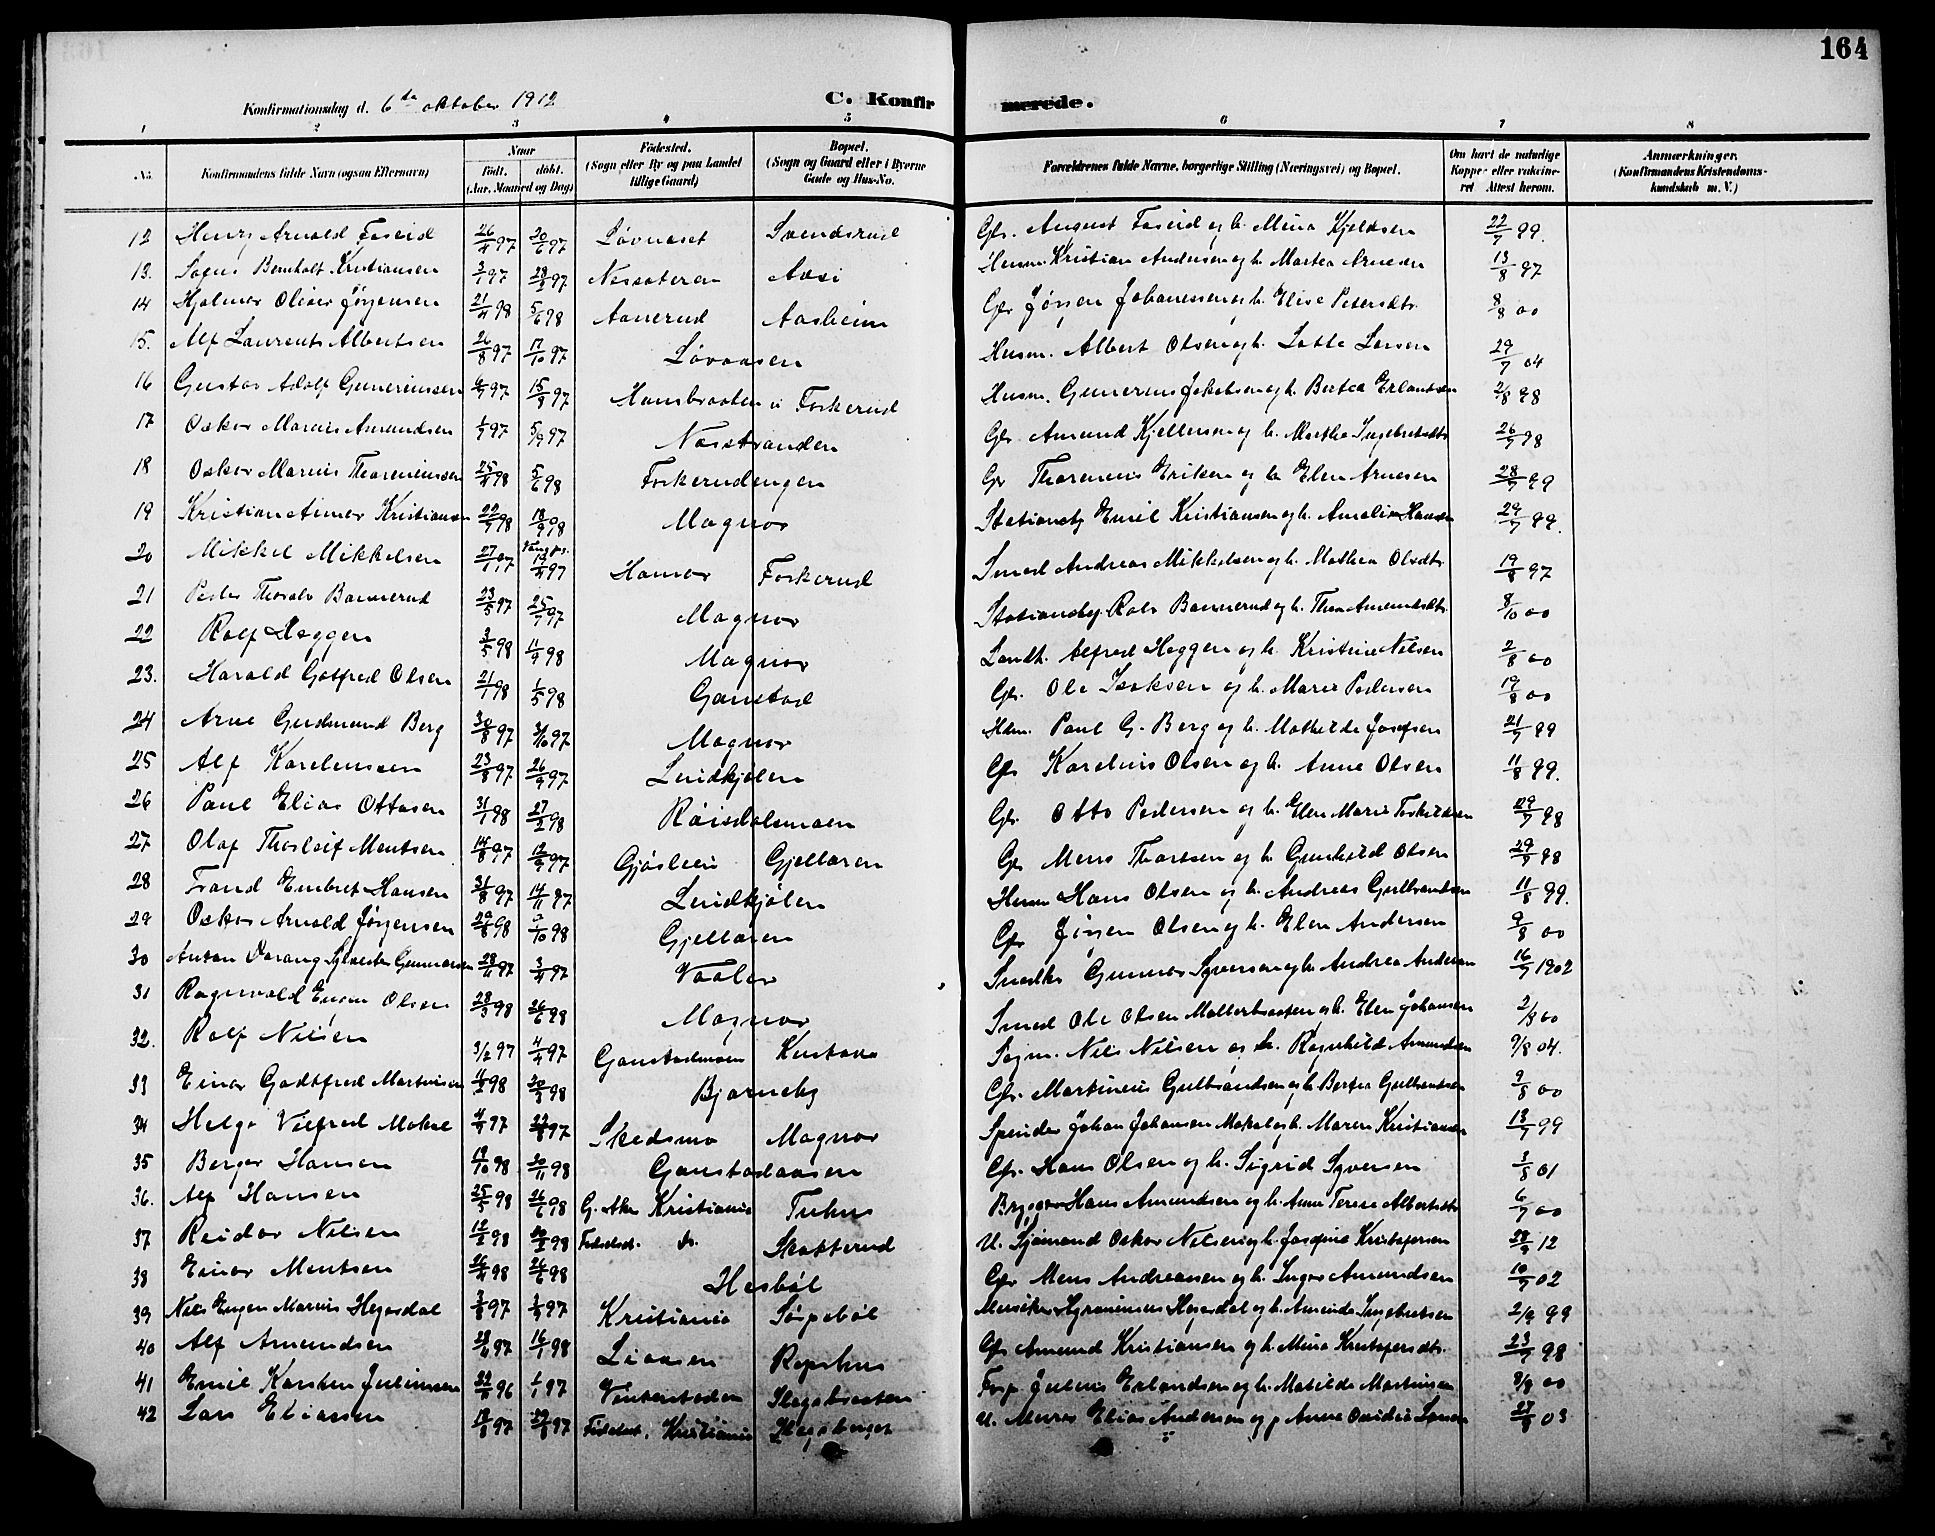 164
Konfirmationsdag d. 6te oktober 1912
C. Konfirmerede.
1 2 3 4 5 6 7 8
No. Konfirmandens fulde Navn (ogsaa Efternavn) Naar Födt. döbt. (Aar, Maaned og Dag) Födested. (Sogn eller By og paa Landet tillige Gaard) Bopæl. (Sogn og Gaard eller i Byerne Gade og Hus-No. Forældrenes fulde Navne, borgerlige Stilling (Næringsvei) og Bopæl. Om havt de naturlige Kopper eller vakcineret Attest herom. Anmærkninger. (Konfirmandens Kristendomskundskab m. V.)
12 Henry Arnold Foseid 26/4 97 20/6 97 Løvnaset Svendsrud Gbr. August Foseid og h. Mina Kjeldsen 22/7 99.
13. Bernholt Kristiansen 97 97 Husm. Kristian Andersen og h. Martea Arnesen 13/8 97
14 Hjalmar Oliver Jørgensen 21/4 98 5/6 98 Aanerud Aasheim Gbr Jørgen Johanessen og h. Elise Petersdtr. 8/8 00
15. Alf Laurents Albertsen 26/8 97 17/10 97 Løvaasen Husm. Albert Olsen og h. Lotte Larsen 29/7 04
16 Gustav Adolf Guneriussen 97 15/8 97 Hansbraaten u Foskerud Husm. Gunerius Jakobsen og h. Bertea Erlandsen 2/8 98
17 Oskar Marius Amundsen 1/7 97 5/9 97 Nasstranden Gbr. Amund Kjellersen og h. Marthe Ingebretsdtr 26/7 98
18 Oskar Marius Thoreniussen 25/4 98 5/6 98 Foskerudengen Gbr Thorenius Eriksen og h. Elen Arnesen 28/7 99
19 Kristian Aimar Kristiansen 22/7 98 18/9 98 Magnor Stationsbtj Emil Kristiansen og h. Amalie Hansen 29/7 99.
20 Mikkel Mikkelsen 27/1 97 19/4 97 Hamar Foskerud Smed Andreas Mikkelsen og h. Mathea Olsdtr. 19/8 97
21 Peder Thoralv Bannerud 23/5 97 25/7 97 Magnor Stationsbtj. Rolv Bannerud og h. Thea Amundsdtr. 8/10 00
22 Rolf Heggen 3/5 98 11/9 98 Magnor Landh. Alfred Heggen og h. Kristine Nilsen 2/8 00
23. Harald Gotfred Olsen 21/1 98 1/5 98 Gaustad Gbr. Ole Isaksen og h. Marie Pedersen 19/8 00
24 Arne Gudmund Berg 30/8 97 3/10 97 Magnor Hdm. Paul G. Berg og h. Mathilde Josefsen 21/7 99
25 Alf Kareliussen 23/8 97 26/9 97 Lindkjølen Gbr Karelius Olsen og h. Anne Olsen 11/8 99.
26 Paul Elias Ottosen 31/1 98 27/2 98 Røisdalsmoen Gbr. Otto Pedersen og h. Elen Marie Torkildsen 29/7 98
27 Olaf Thorleif Mentsen 14/8 97 12/9 97 Gjøslein Gjellaren Gbr Mens Thoresen og h. Gunhild Olsen 29/8 98
28 Trond Embret Hansen 31/8 97 14/11 97 Lindkjølen Husm Hans Olsen og h. Andrea Gulbrandsen 11/8 99.
29 Oskar Arnold Jørgensen 29/8 98 /10 98 Gjellaren Gbr Jørgen Olsen og h. Elen Andersen 9/8 00
30 Anton Sylvester Gunnarsen 97 3/4 97 Vaaler Smedks Gunnar Syversen og h. Andrea Andersen 16/7 1902
31 Ragnvald Eugen Olsen 28/3 98 26/6 98 Magnor Smed Ole Olsen Mollerbraaten og h. Elen Johansen 2/8 00
32. Rolf Nilsen 3/2 97 4/4 97 Gaustadmoen Kustana Sagm. Nils Nilsen og h. Ragnhild Amundsen 9/8 04.
33 Einar Godtfred Martinisen 11/2 98 20/3 98 Bjørneby Gbr. Martineus Gulbrandsen og h. Bertea Gulbrandsen 9/8 00
34 Helge Vilfred Mokal 97 97 Skedsmo Magnor Spinder Johan Johansen Mokal og h. Maren Kristiansen 13/7 99
35 Berger Hansen 19/10 98 20/11 98 Gaustadaasen Gbr. Hans Olsen og h. Sigrid Syversen 3/8 01
36. Alf Hansen 25/5 98 26/6 98 G. Aker Kristiania Tuhus Hans Amundsen og h. Anne Terese Albertsdtr 6/7 00
37 Reidar Nilsen 12/2 98 98 Fødselsst. do. Skotterud U. Sjømand Oskar Nilsen og h. Josefine Kristofersen 12
38 Einar Mentsen 26/4 98 26/6 98 Hesbøl Gbr Mens Andreassen og h. Inger Amundsen 10/7 02
39 Nils Eugen Marius Hegerdal 3/8 97 97 Kristiania Sørpebøl Musiker Hyronimus Hegerdal og h. Amunda Ingebretsen 2/9 99
40 Alf Amundsen 97 16/1 98 Liaasen Rophus Gbr Amund Kristiansen og h. Mina Kristofersdtr. 23/7 98
41 Emil Karsten Juliussen 96 1/1 97 Slagsbraaten Forp. Julius Erlandsen og h. Matilde Martinsen 9/8 00
42 Lars Eliassen 97 97 Fødselsst. Kristiania U. Murer Elias Andersen og p Anne Larsen 27/8 03